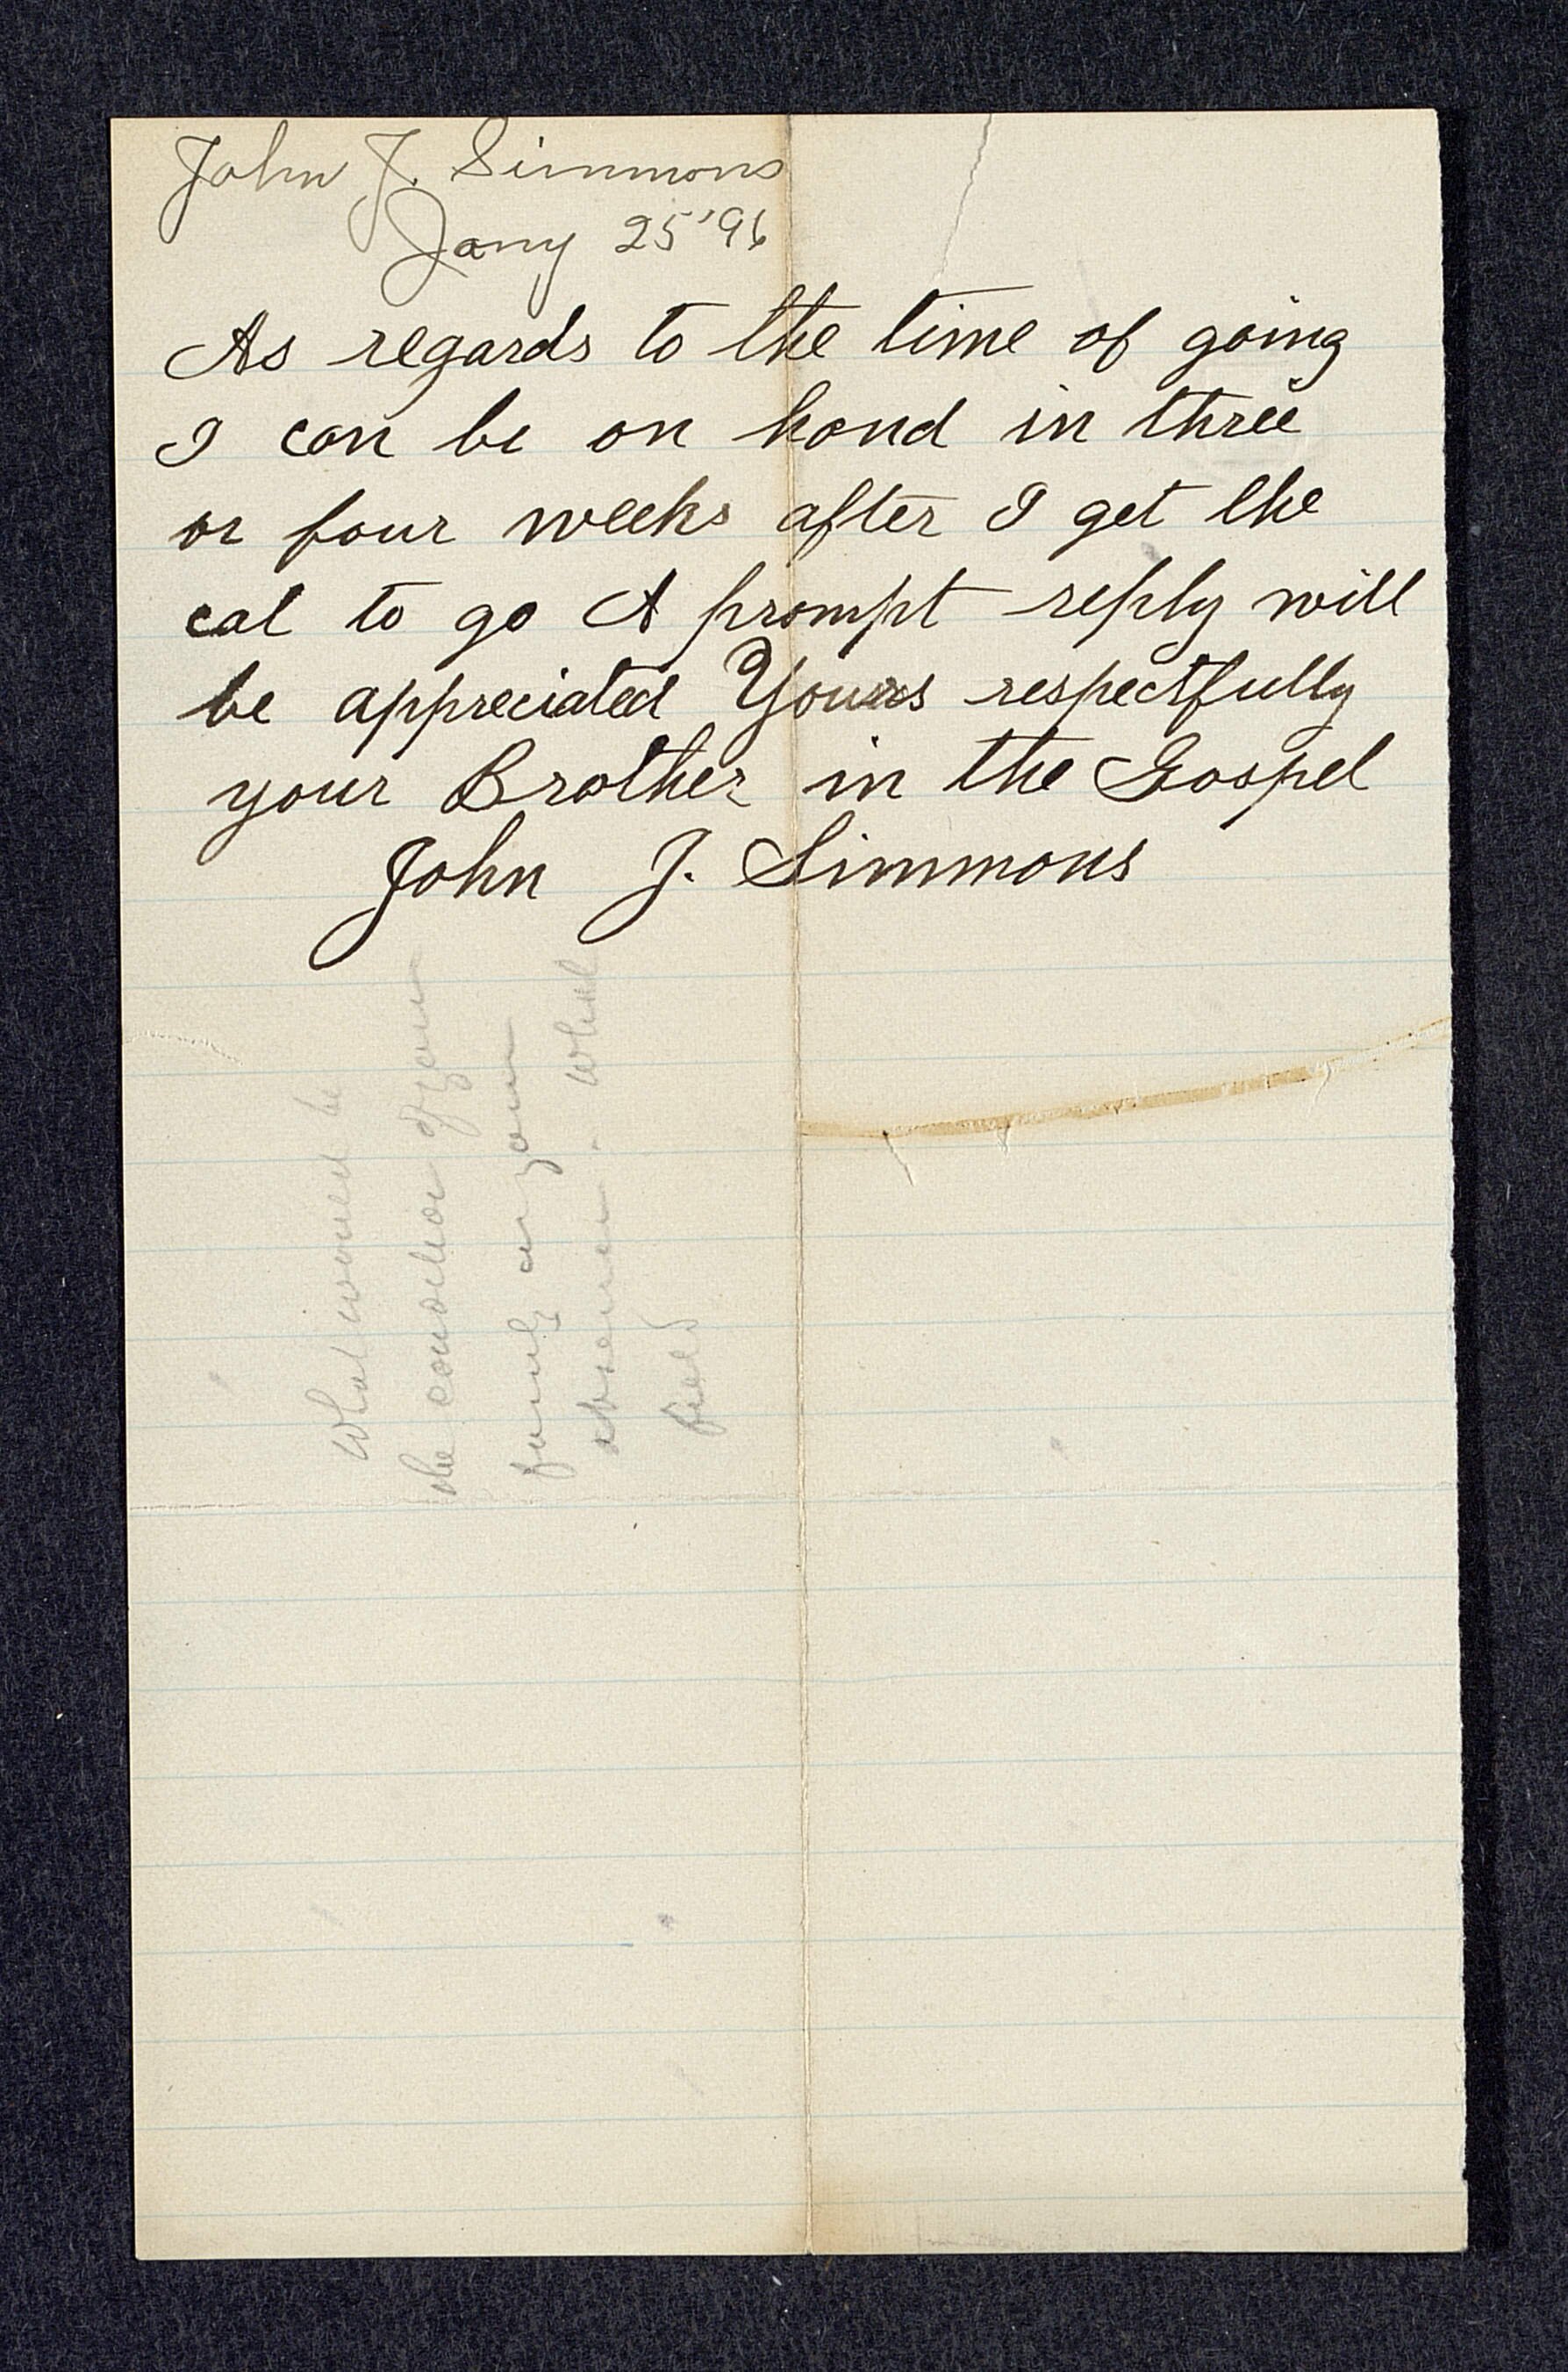 John J. Simmons
Jany 25 '96
As regards to the time of going
I can be on hand in three
or four weeks after I get the
cal to go A prompt reply will
be appreciated Yours respectfully
your Brother in the Gospel
John J. Simmons
What would be
the condition of your
family in your
absence. - What
field